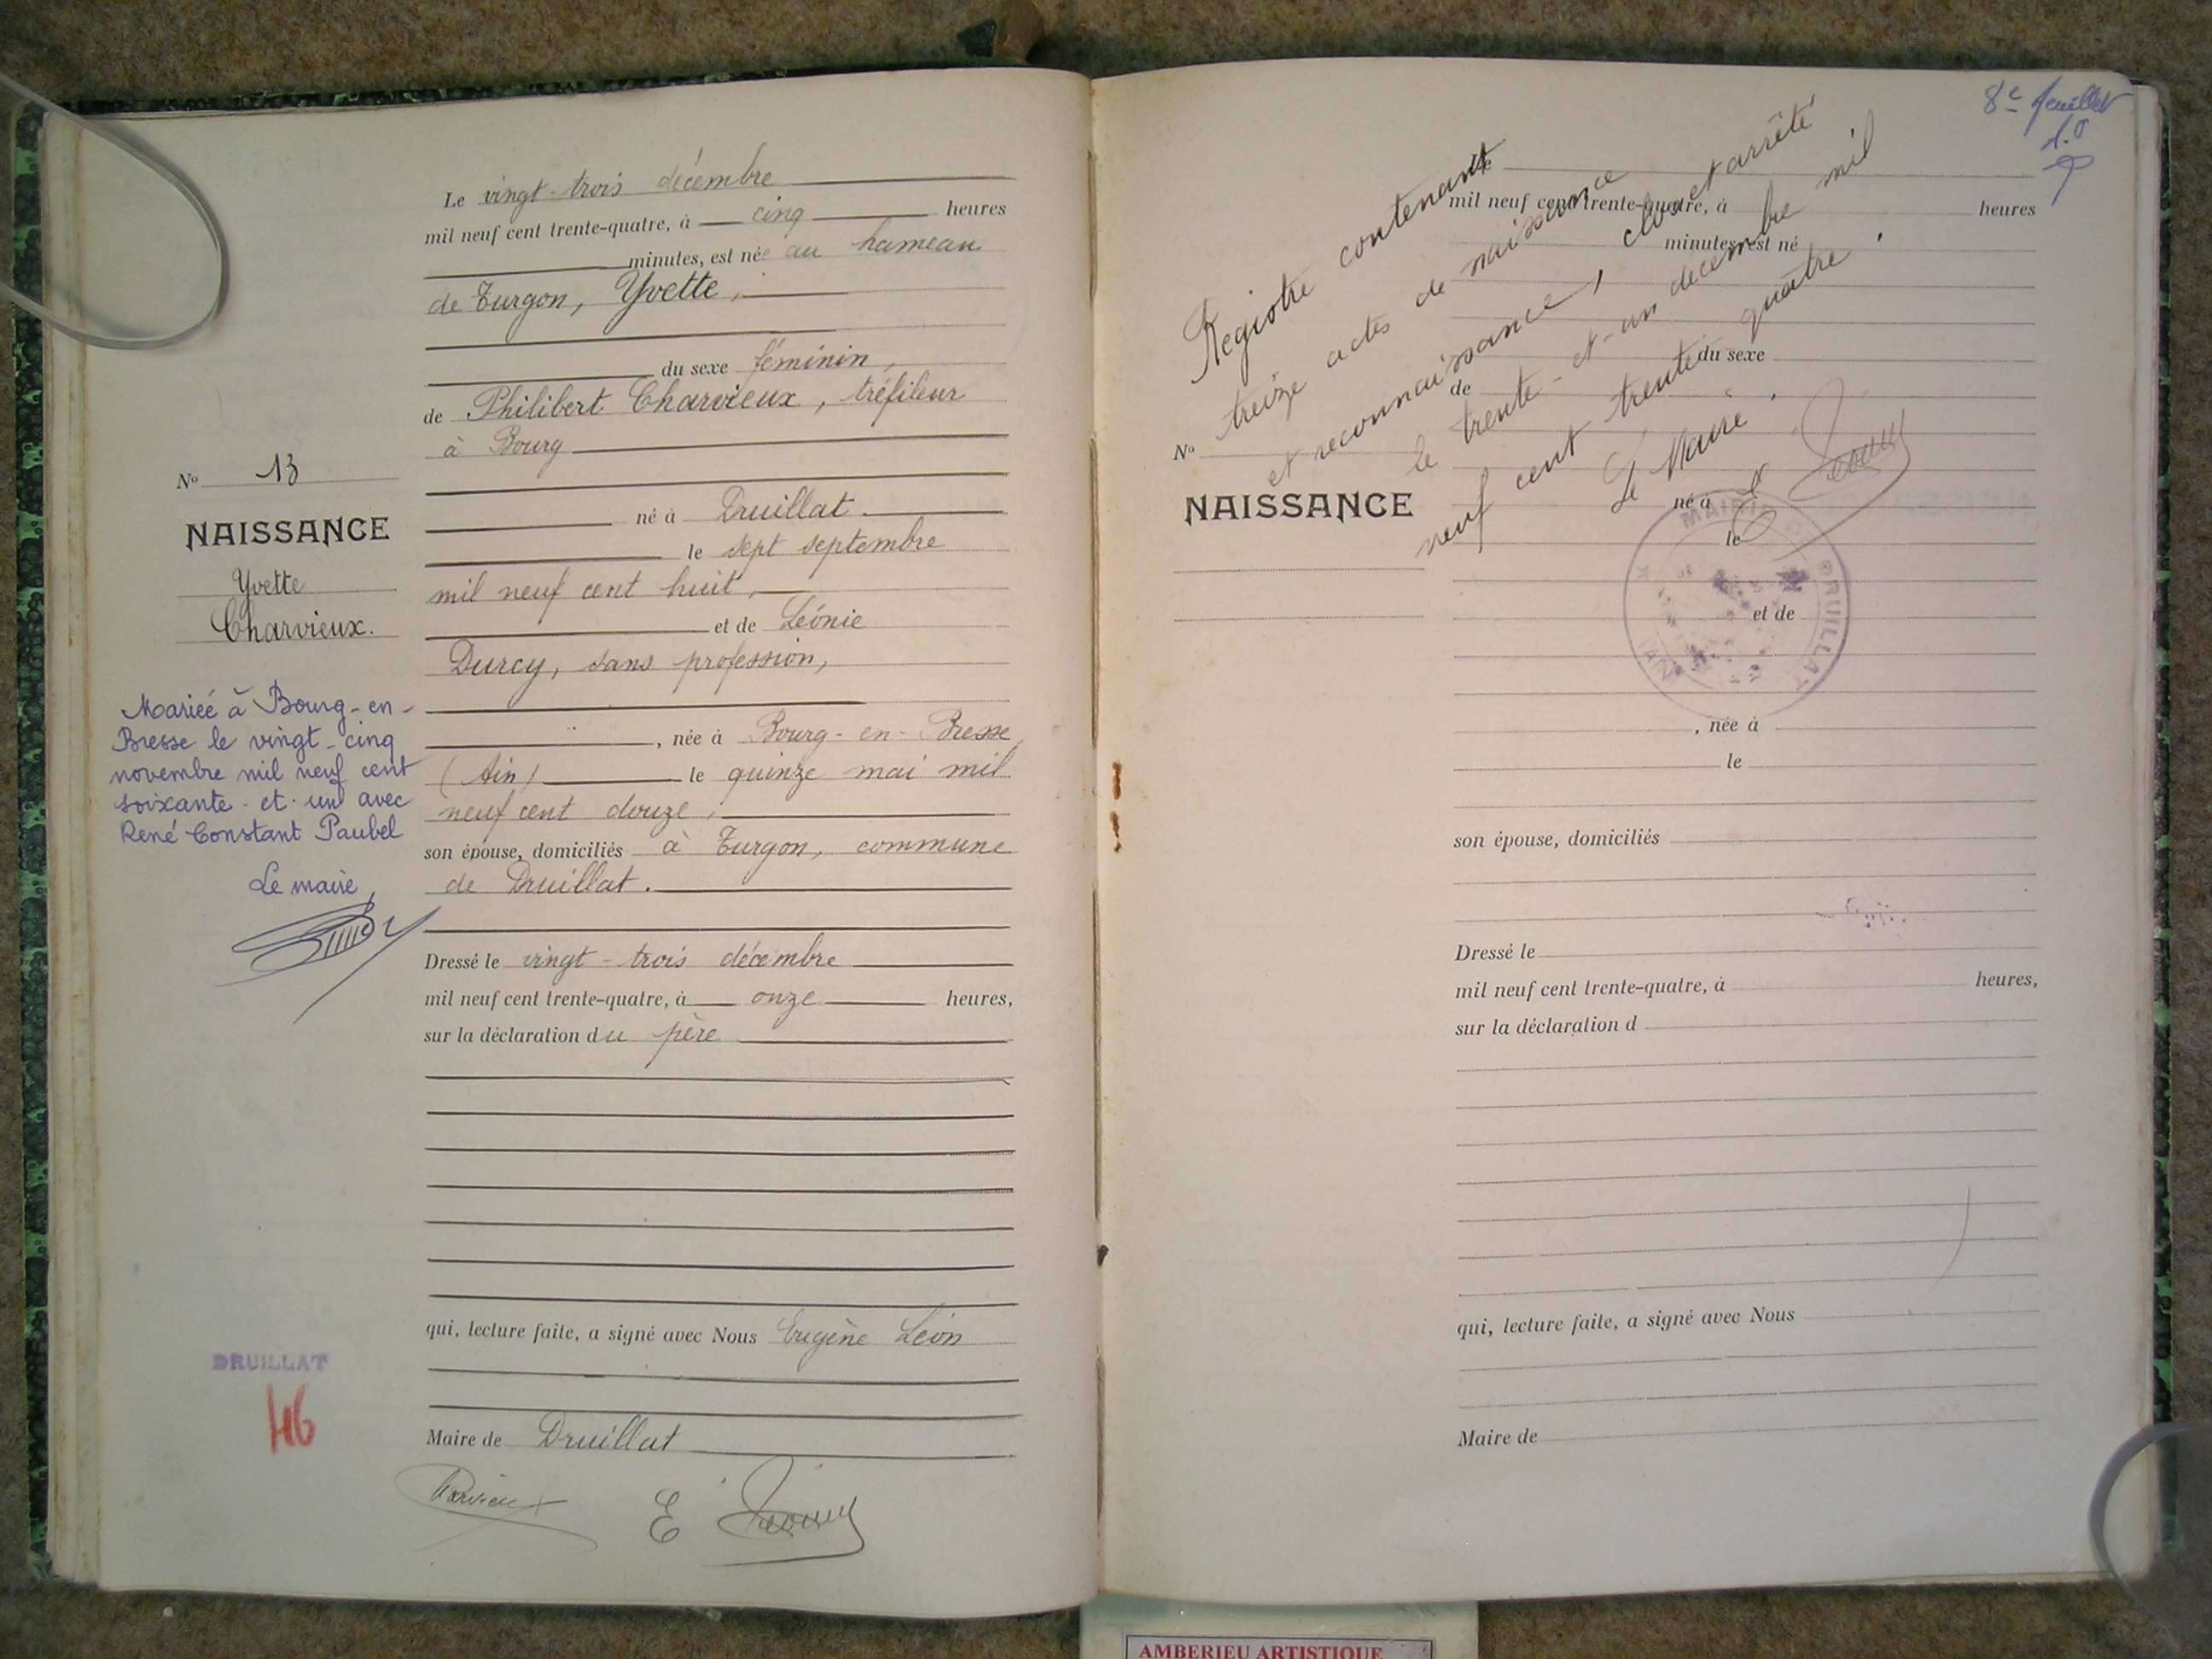 Le vingt-trois décembre
mil neuf cent trente-quatre, à cinq heures
minutes, est née au hameau
de Turgon, Yvette,
du sexe féminin,
de Philibert Charvieux, tréfileur
à Bourg
né à Druillat
le sept septembre
mil neuf cent huit,
et de Léonie
Durcy, sans profession,
, née à Bourg-en-Bresse
(Ain) le quinze mai mil
neuf cent douze,
son épouse, domiciliés à Turgon, commune
de Druillat.
Dressé le vingt-trois décembre
mil neuf cent trente-quatre, à onze heures,
sur la déclaration du père
qui, lecture faite, a signé avec Nous Eugène Léon
Maire de Druillat
Charvieux
E
No 13
NAISSANCE
Yvette
Charvieux.
Mariée à Bourg-en-
Bresse le vingt-cinq
novembre mil neuf cent
soixante-et-un avec
René Constant Paubel
Le maire,
DRUILLAT
46
8e feuillet
Registre contenant
treize actes de naissance
et reconnaissance, clos et arrêté
le trente-et-un décembre mil
neuf cent trente quatre.
Le Maire,
Le
mil neuf cent trente-quatre, à heures
minutes, est né
du sexe
de
No
NAISSANCE
né à
le
et de
MAIRIE DE DRUILLAT
(AIN)
, née à
le
son épouse, domiciliés
Dressé le
mil neuf cent trente-quatre, à heures,
sur la déclaration d
qui, lecture faite, a signé avec Nous
Maire de
AMBERIEU ARTISTIQUE